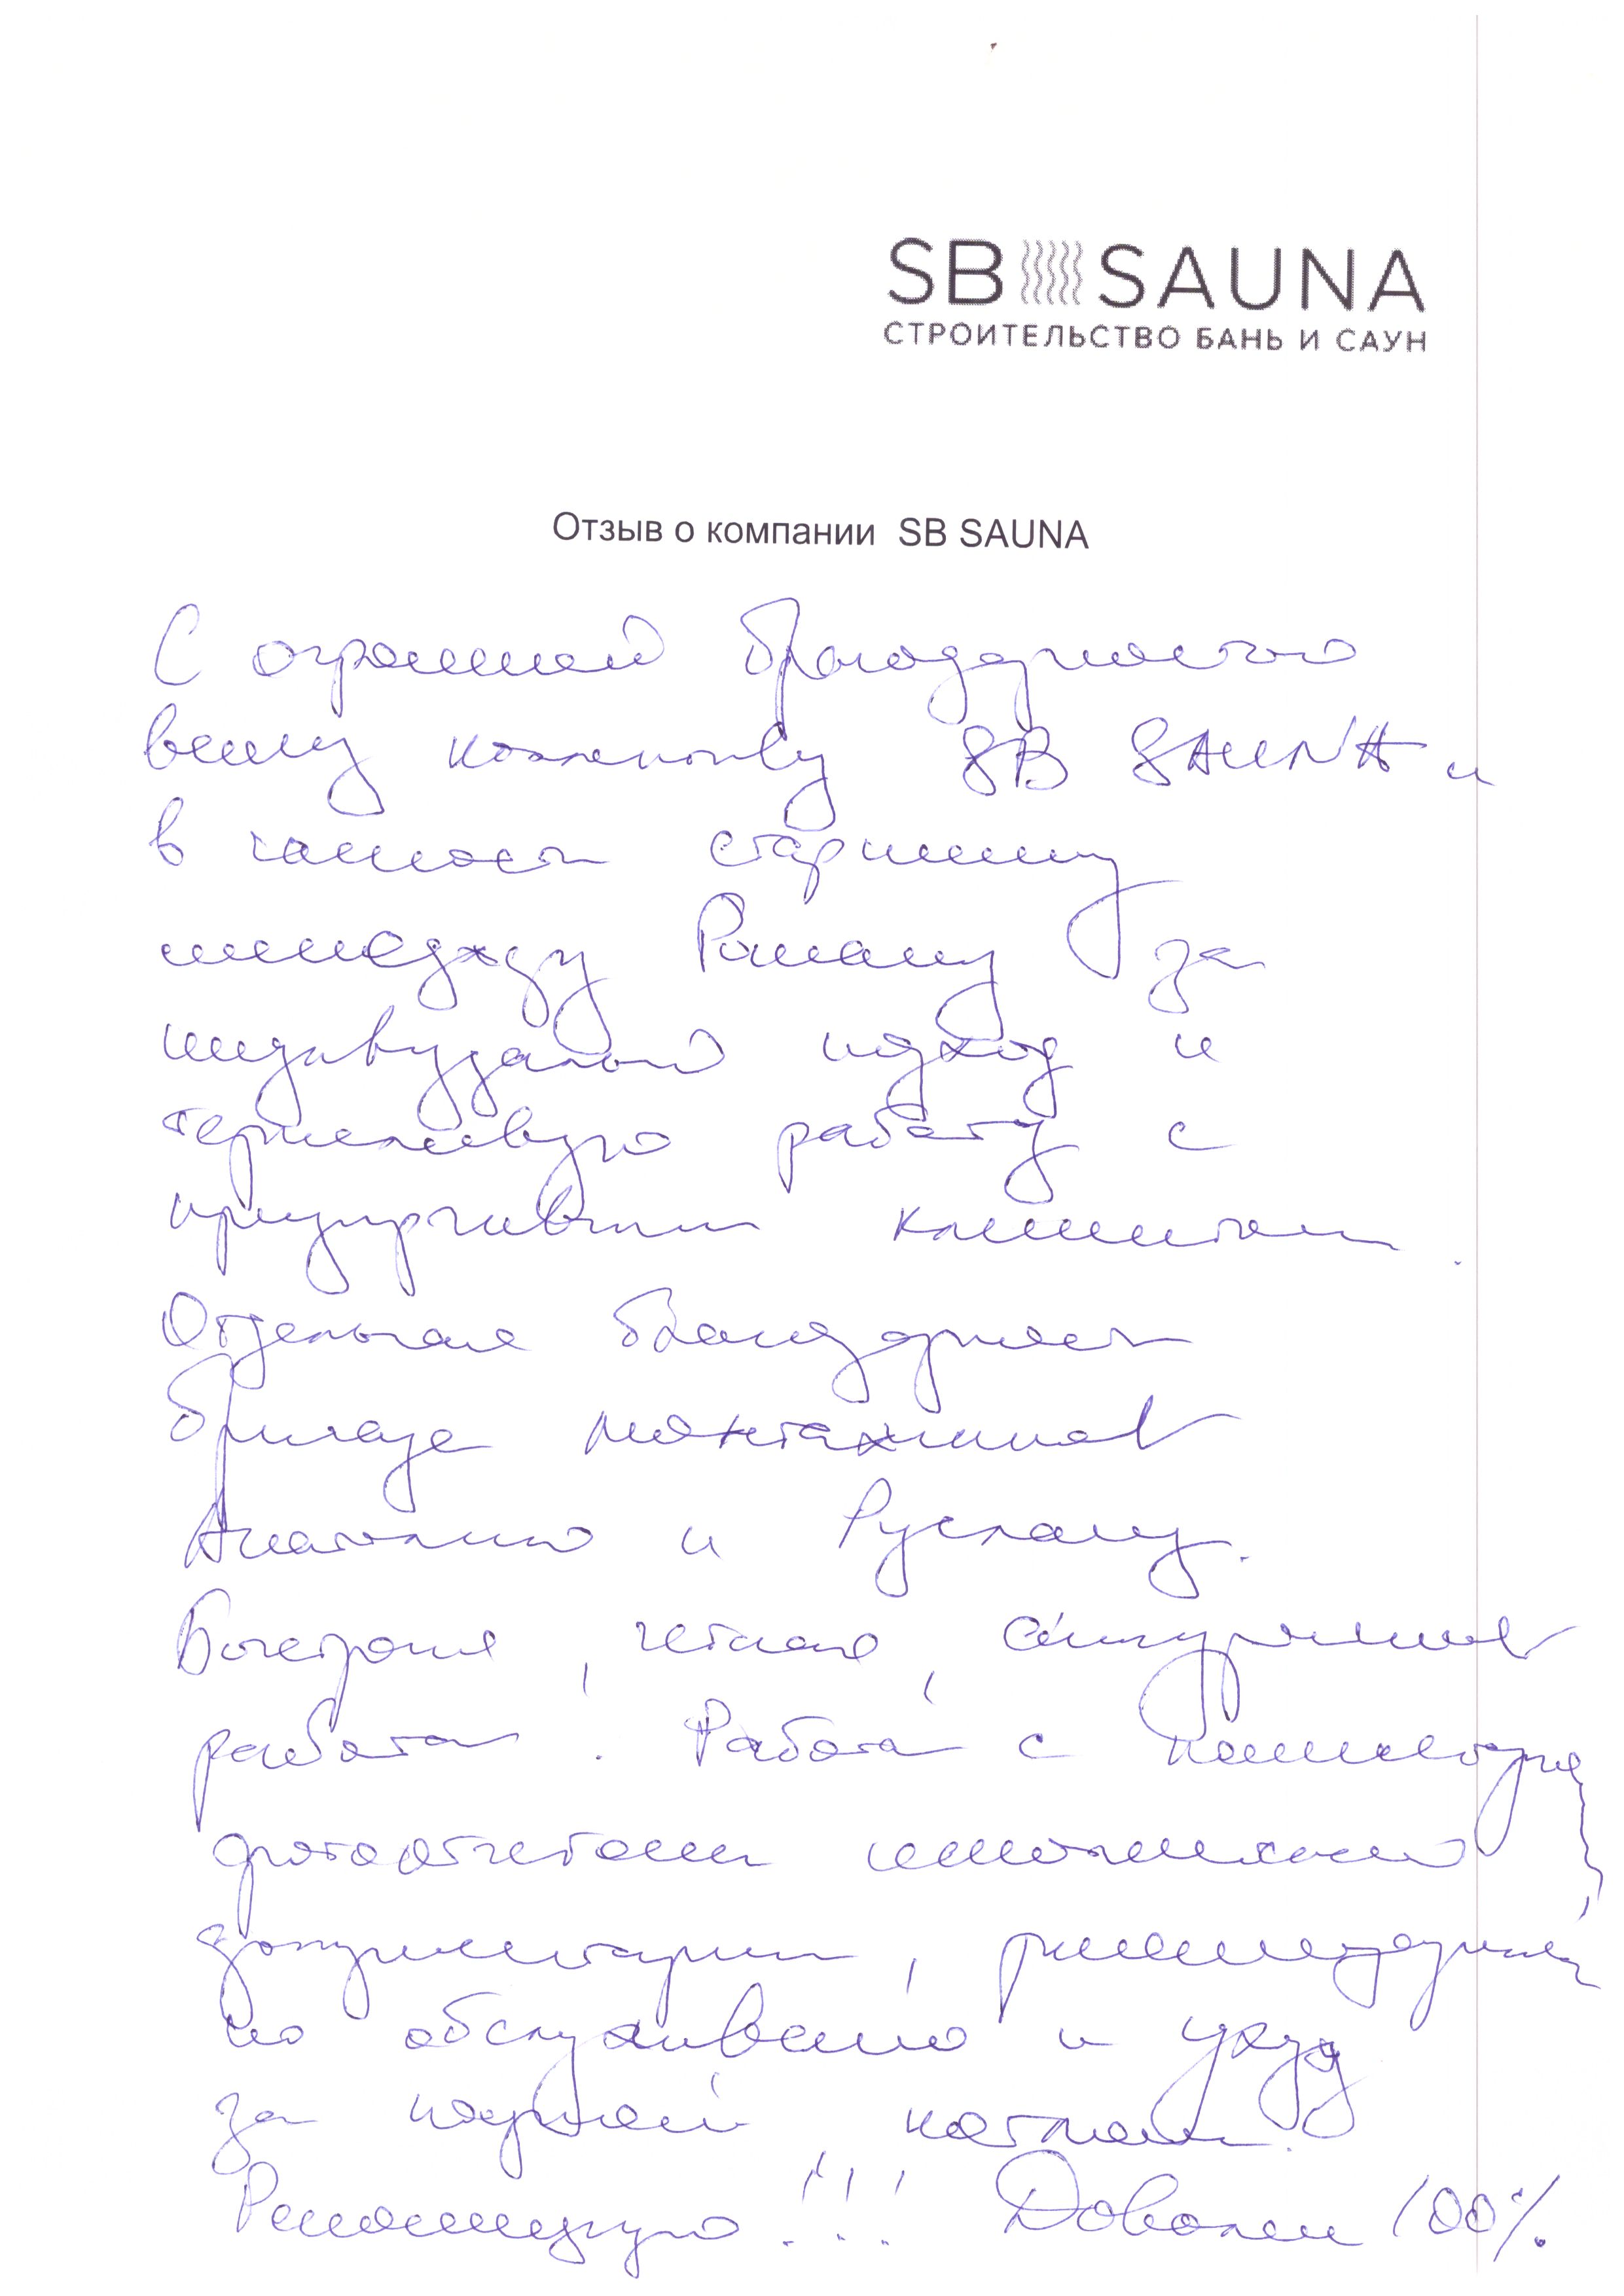 SB SAUNA
СТРОИТЕЛЬСТВО БАНЬ И САУН
Отзыв о компании SB SAUNA
С огромной благодарностью
вашему коллективу SB SAUNA и
в частности старшему
менеджеру Роману за
индивидуальный подход и
терпеливую работу с
клиентом.
Отдельная благодарность
бригаде монтажников
Анатолию и Руслану.
Быстрая, четкая,
работа. Работа с
фотоотчетом
документации, рекомендации
по обслуживанию и уходу
за
Рекомендую!!! Доволен 100%